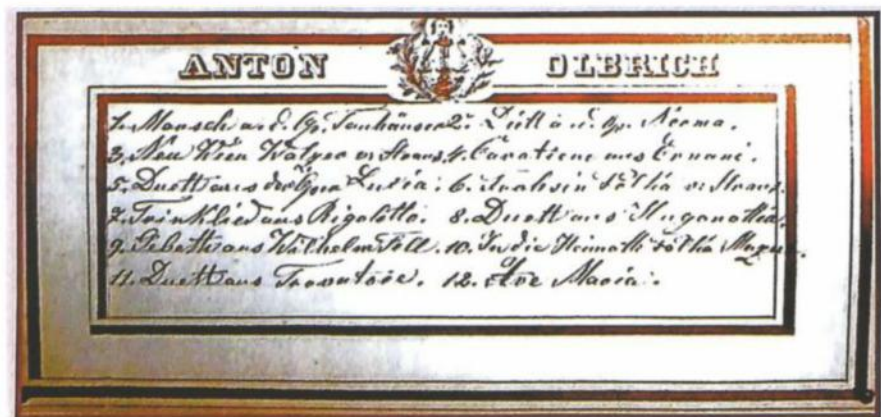 ANTON OLBRICH
1. Marsch a. d. Op. Tanhäuser 2. Duett a. d. Op. Norma.
3. Neu Wien Walzer v. Straus. 4. Cavatiene aus Ernani.
5. Duett aus der Oper Lucia. 6. Frohsin v. Straus.
7. Trinklied aus Rigoletto. 8. Duett aus Huganotten.
9. Gebett aus Wilhelm Tell. 10. In die Heimath
11. Duett aus Trovatore. 12. Ave Maria.